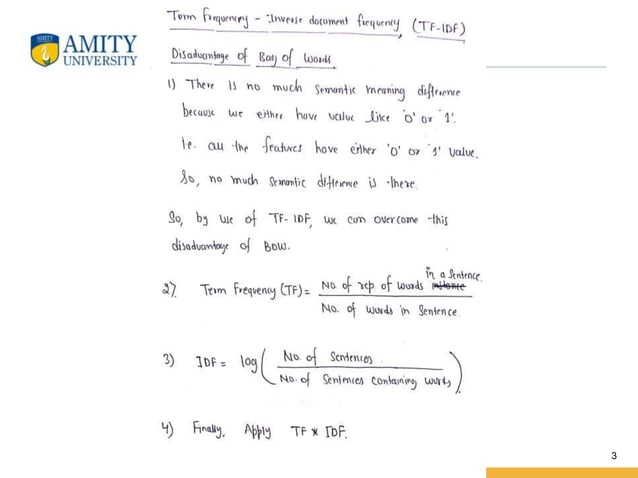 Term frequency - Inverse document frequency (TF-IDF)
AMITY
UNIVERSITY
Disadvantage of Bag of words
1) There is no much semantic meaning difference
because we either have value like '0' or '1'.
i.e. all the features have either '0' or '1' value.
So, no much semantic difference is there.
So, by use of TF-IDF, we can overcome this
disadvantage of BOW.
2) Term Frequency (TF) = No. of rep of words in a sentence
No. of words in sentence
3) IDF = log ( No. of Sentences
No. of Sentences containing words )
4) Finally, Apply TF * IDF.
3